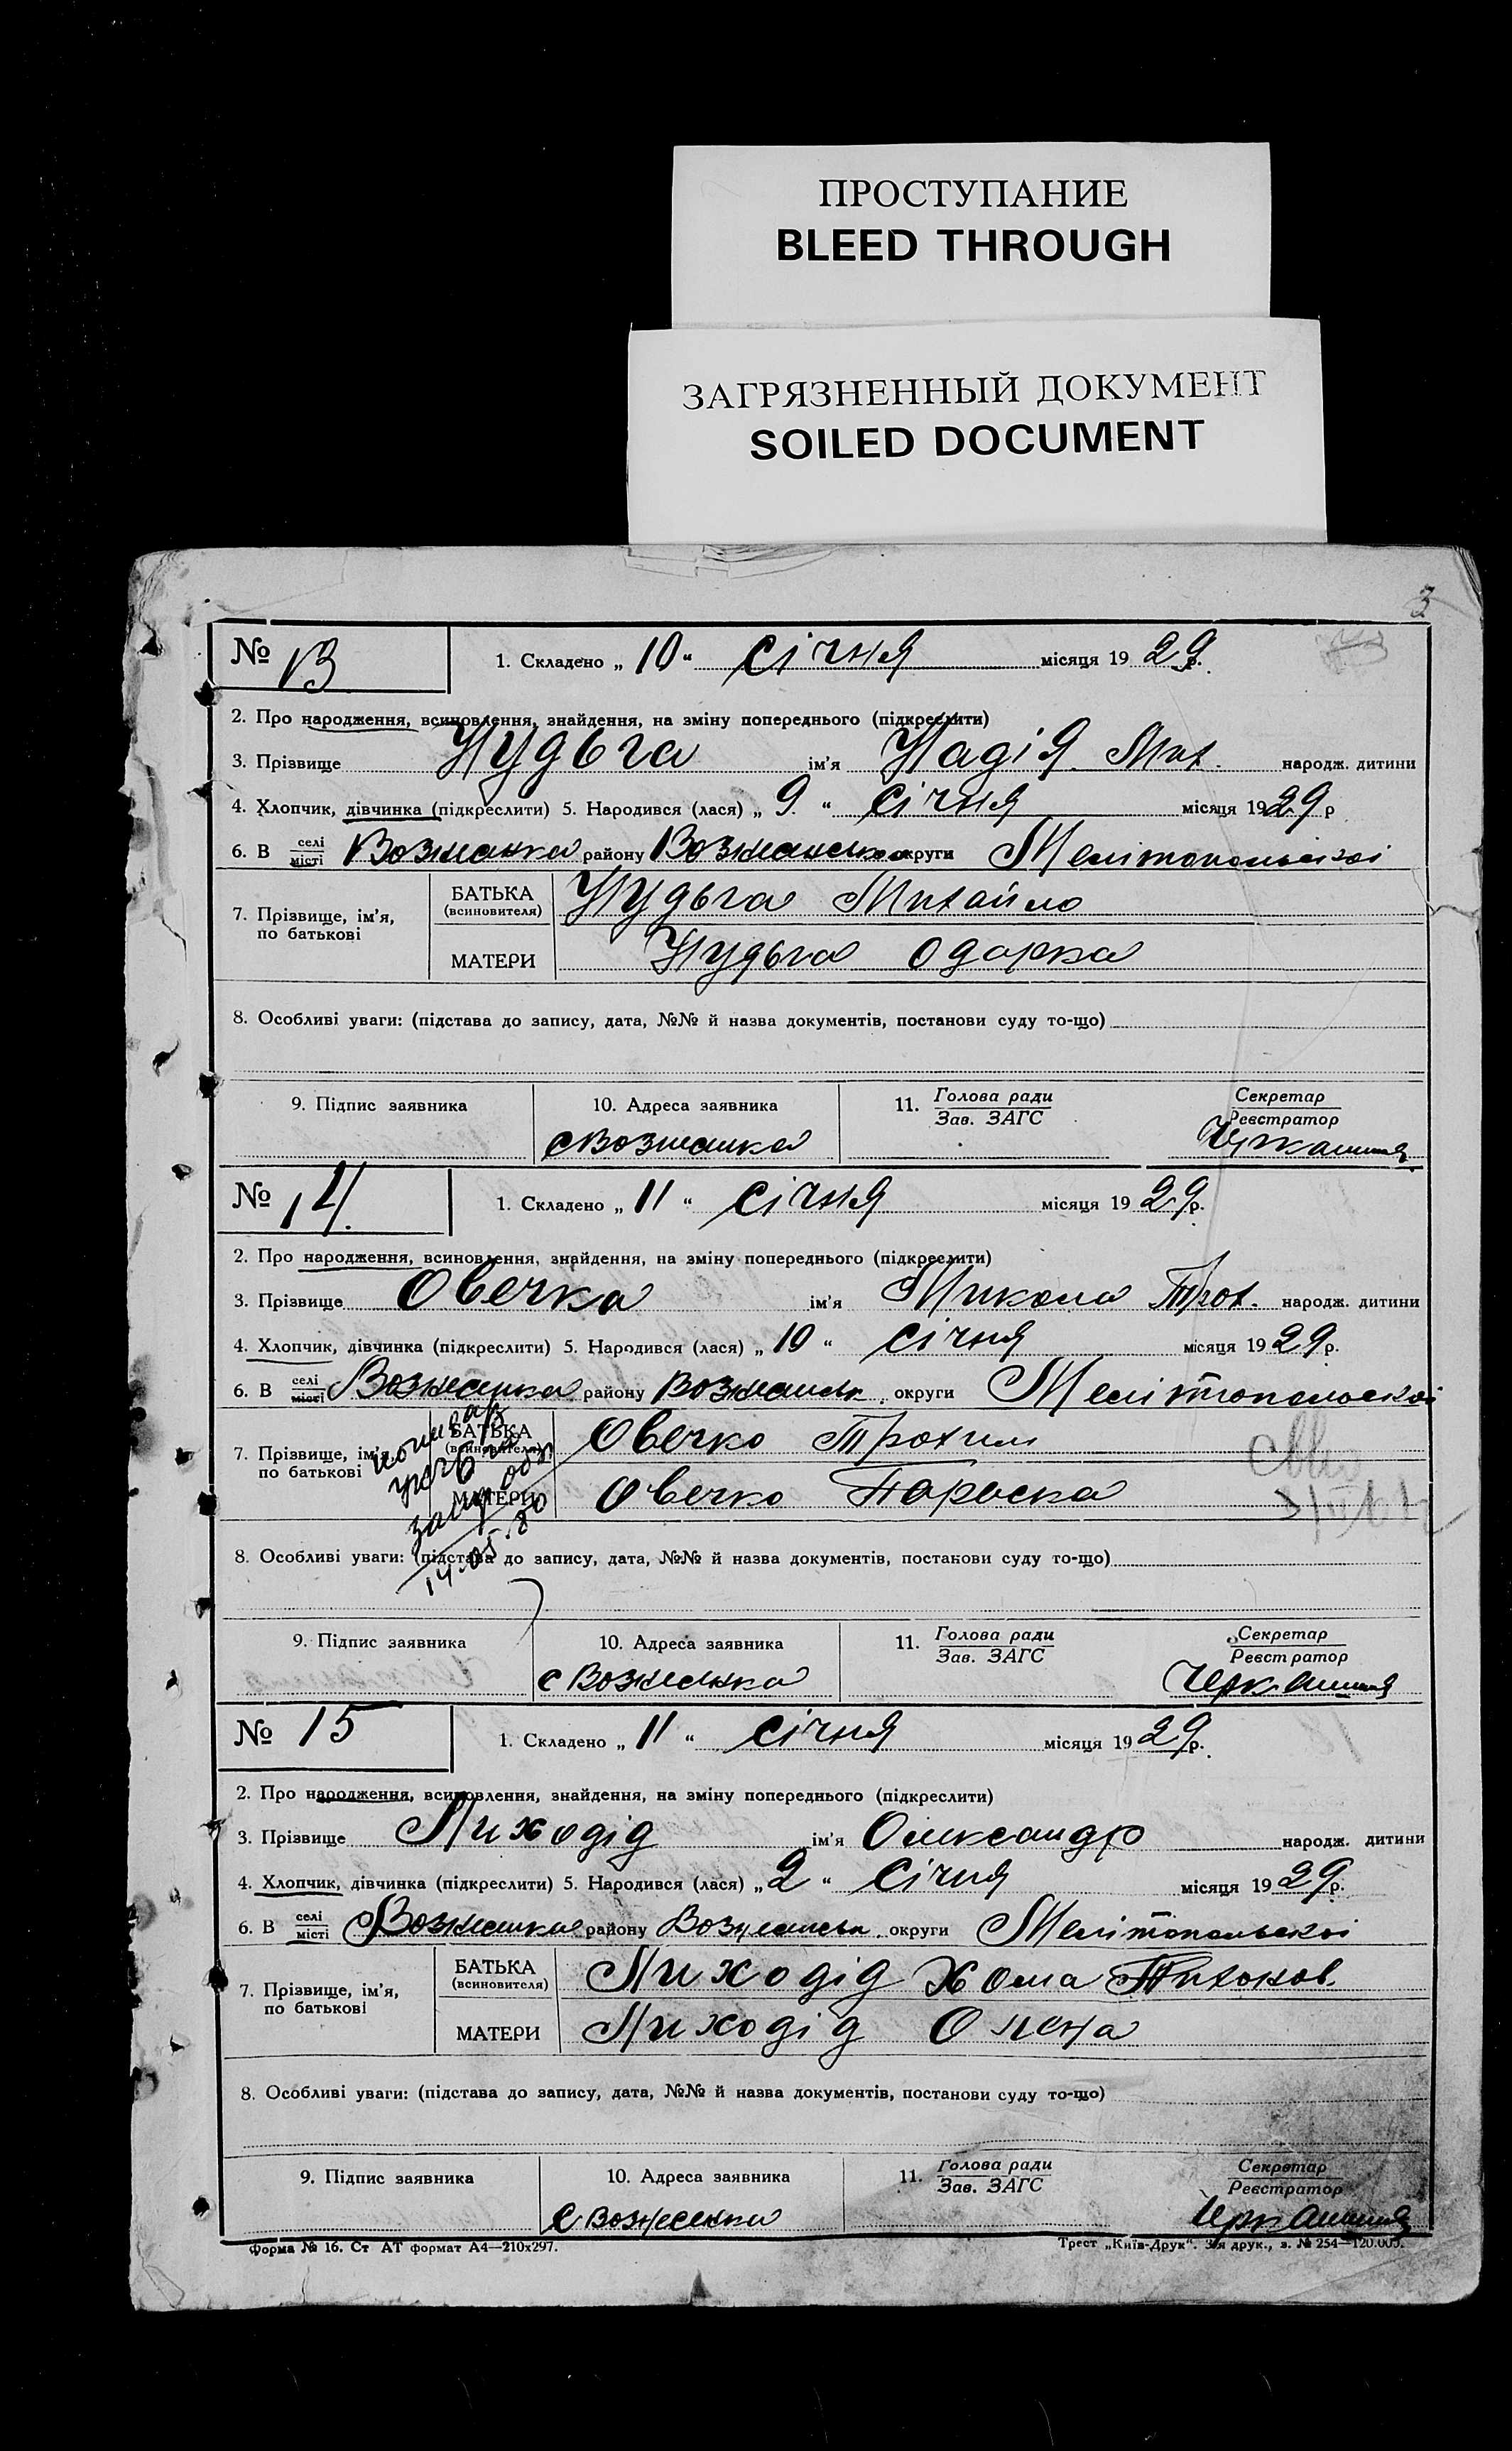 ПРОСТУПАНИЕ
BLEED THROUGH
ЗАГРЯЗНЕННЫЙ ДОКУМЕНТ
SOILED DOCUMENT
3
№ 13 1. Складено „ 10 “ січня місяця 19 29 р.
2. Про народження, всиновлення, знайдення, на зміну попереднього (підкреслити)
3. Прізвище Нудьга ім'я Надія Мих. народж. дитини
4. Хлопчик, дівчинка (підкреслити) 5. Народився (лася) „ 9 “ січня місяця 19 29 р
6. В селі місті району округи Мелітопольскої
7. Прізвище, ім'я, по батькові БАТЬКА (всиновителя) Нудьга Михайло
МАТЕРИ Нудьга Одарка
8. Особливі уваги: (підстава до запису, дата, №№ й назва документів, постанови суду то-що)
9. Підпис заявника 10. Адреса заявника 11. Голова ради Зав. ЗАГС Секретар Реєстратор
№ 14. 1. Складено „ 11 “ січня місяця 19 29 р.
2. Про народження, всиновлення, знайдення, на зміну попереднього (підкреслити)
3. Прізвище Овечка ім'я Микола Трох. народж. дитини
4. Хлопчик, дівчинка (підкреслити) 5. Народився (лася) „ 10 “ січня місяця 19 29 р.
6. В селі місті району округи Мелітопольскої
7. Прізвище, ім'я, по батькові БАТЬКА (всиновителя) Овечко Трохим
МАТЕРИ Овечко Параска
14.05.80
8. Особливі уваги: (підстава до запису, дата, №№ й назва документів, постанови суду то-що)
9. Підпис заявника 10. Адреса заявника 11. Голова ради Зав. ЗАГС Секретар Реєстратор
№ 15 1. Складено „ 11 “ січня місяця 19 29 р.
2. Про народження, всиновлення, знайдення, на зміну попереднього (підкреслити)
3. Прізвище Лиходід ім'я Олександр народж. дитини
4. Хлопчик, дівчинка (підкреслити) 5. Народився (лася) „ 2 “ січня місяця 19 29 р.
6. В селі місті району округи Мелітопольскої
7. Прізвище, ім'я, по батькові БАТЬКА (всиновителя) Лиходід Хома Тихонов.
МАТЕРИ Лиходід Олена
8. Особливі уваги: (підстава до запису, дата, №№ й назва документів, постанови суду то-що)
9. Підпис заявника 10. Адреса заявника 11. Голова ради Зав. ЗАГС Секретар Реєстратор
с Вознесенка
Форма № 16. Ст АТ формат А4—210х297. Трест „Київ-Друк“. 3-я друк., з. № 254—120.000.